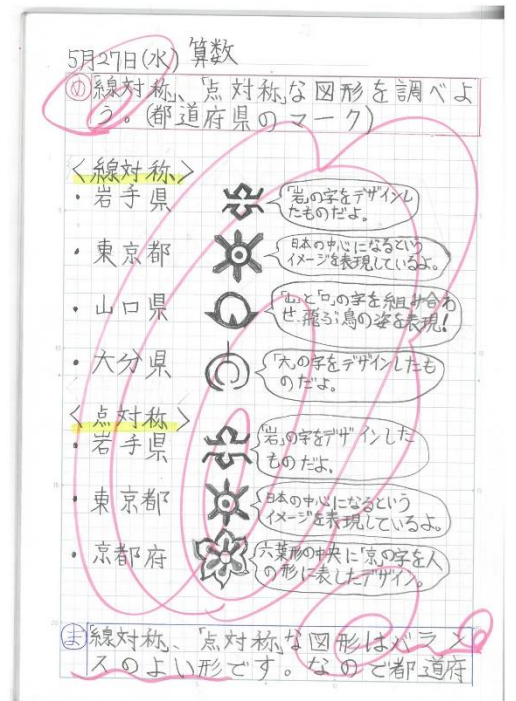 5月27日(水) 算数
め「線対称」、「点対称」な図形を調べよ
う。(都道府県のマーク)
<線対称>
・岩手県
「岩」の字をデザインし
たものだよ。
・東京都
日本の中心になるという
イメージを表現しているよ。
・山口県
「山」と「口」の字を組み合わ
せ、飛ぶ鳥の姿を表現!
・大分県
「大」の字をデザインしたも
のだよ。
<点対称>
・岩手県
「岩」の字をデザインした
ものだよ。
・東京都
日本の中心になるという
イメージを表現しているよ。
・京都府
六葉形の中央に「京」の字を人
の形に表したデザイン。
ま「線対称」、「点対称」な図形はバラン
スのよい形です。なので都道府